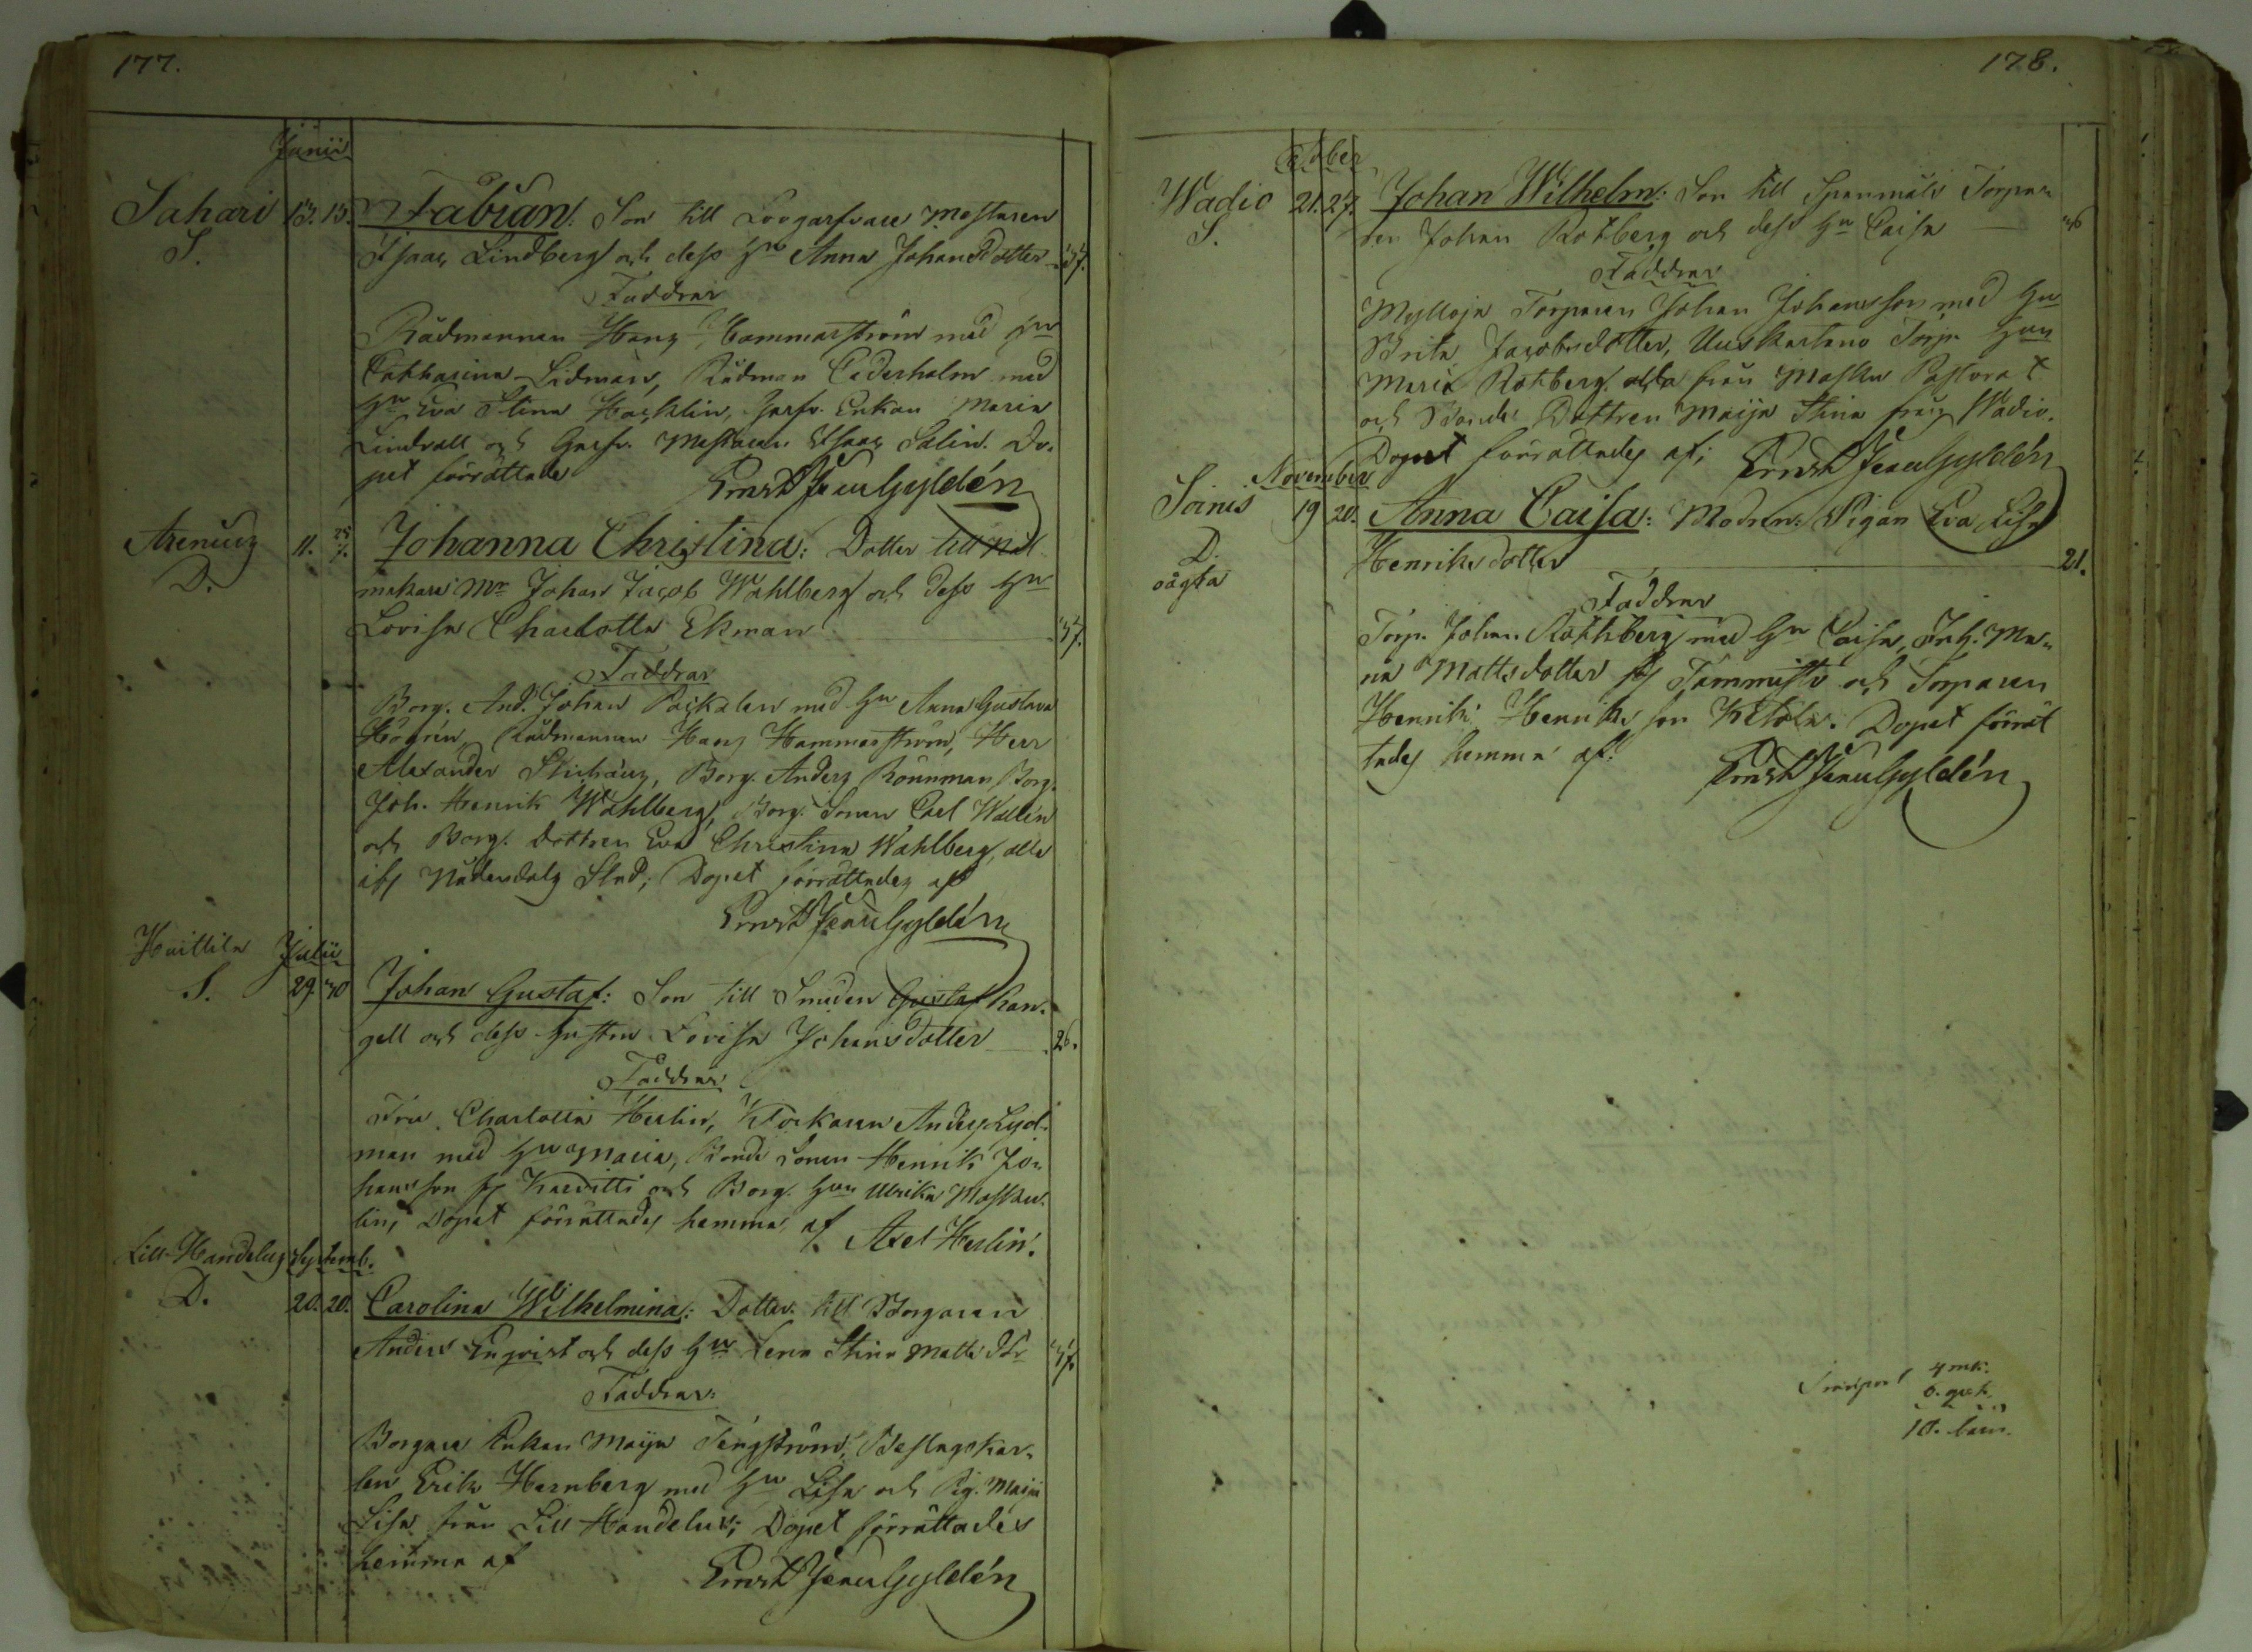 177.
Junii
Sahari 13. 15. Fabian. Son till Logarfvare Mästaren
S. Isaac Lindberg och dess Hu Anna Johansdotter 37.
Faddrar
Rådmannen Hans Hammarström med Hu
Catharina Lidman, Rådman Cederholm med
Hu Eva Stina Hacklin, Garfv. Enkan Maria
Lindvall och Garfv. Mästaren Isaac Salin. Do-
pet förrättade Ernst Jean Gyldén
Arenius 11. 25/7. Johanna Christina: Dotter till
D. makare Mr Johan Jacob Wahlberg och dess Hu
Lovisa Charlotta Ekman 37.
Faddrar
Borg. And. Johan med Hu Anna Gustava
Högrén, Rådmannen Hans Hammarström, Herr
Alexander Borg. Anders Rönnman Borg.
Joh. Henrik Wahlberg, Borg. Sonen Carl Wallén
och Borg. Dottren Eva Christina Wahlberg, alla
ifr Nådendals Stad; Dopet förrättades af
Ernst Jean Gyldén
Haittila Julii
S. 29 30 Johan Gustaf: Son till Smeden Gustaf Ran-
gell och dess Hustru Lovisa Johansdotter 26.
Faddrar
Fru Charlotta Herlin, Klockaren Anders Lyd-
man med Hu Maria, Bonde Sonen Henrik Jo-
hansson fr och Borg. Hun Ulrika
lin, Dopet förrättades hemma af
Axel Herlin.
Lill-Handelus Septemb.
D. 20. 20. Carolina Wilhelmina: Dotter till Borgaren
Anders Enqvist och dess Hu Lena Stina Matts Dr 37.
Faddrar:
Borgare Enkan Maija Tengström, Beslagskar-
len Erik Hernberg med Hu Lisa och Pig. Maija
Lisa från Lill Handelus; Dopet förrättades
hemma af Ernst Jean Gyldén
178.
October
Wadio 21. 27. Johan Wilhelm: Son till Spanmåls Torpa-
S. ren Johan Rothberg och dess Hu Caisa 36
Faddrar
Mylloja Torparen Johan Johansson med Hu
Brita Jacobsdotter, Uuskartano Torp. Hun
Maria Rothberg alla från Masku Pastorat
och Bonde Dottren Maija Stina från Wadio.
Dopet förrättades af; Ernst Jean Gyldén
November
Soinis 19 20. Anna Caisa: Modren: Pigan Eva Lisa
D. Henriksdotter 21.
oägta
Faddrar
Torp. Johan Rothberg med Hu Caisa, Inh. Ma-
ria Mattsdotter fr Tammisto och Torparen
Henrik Henriksson Dopet förrät
tades hemma af: Ernst Jean Gyldén
4 mk.
6. qvk.
10. barn.